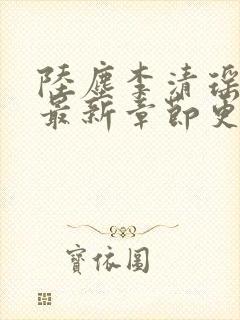 陸塵李清瑤
最新章節更
寶依圖